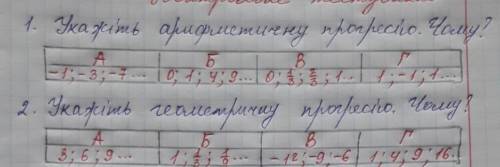 1. Укажіть арифметичну прогресію. Чому?
А Б В Г
-1; -3; -7... 0; 1; 4; 9... 0; 1/3; 2/3; 1.. 1; -1; 1...
2. Укажіть геометричну прогресію. Чому?
А Б В Г
3; 6; 9... -12; -9; -6 1; 4; 9; 16.